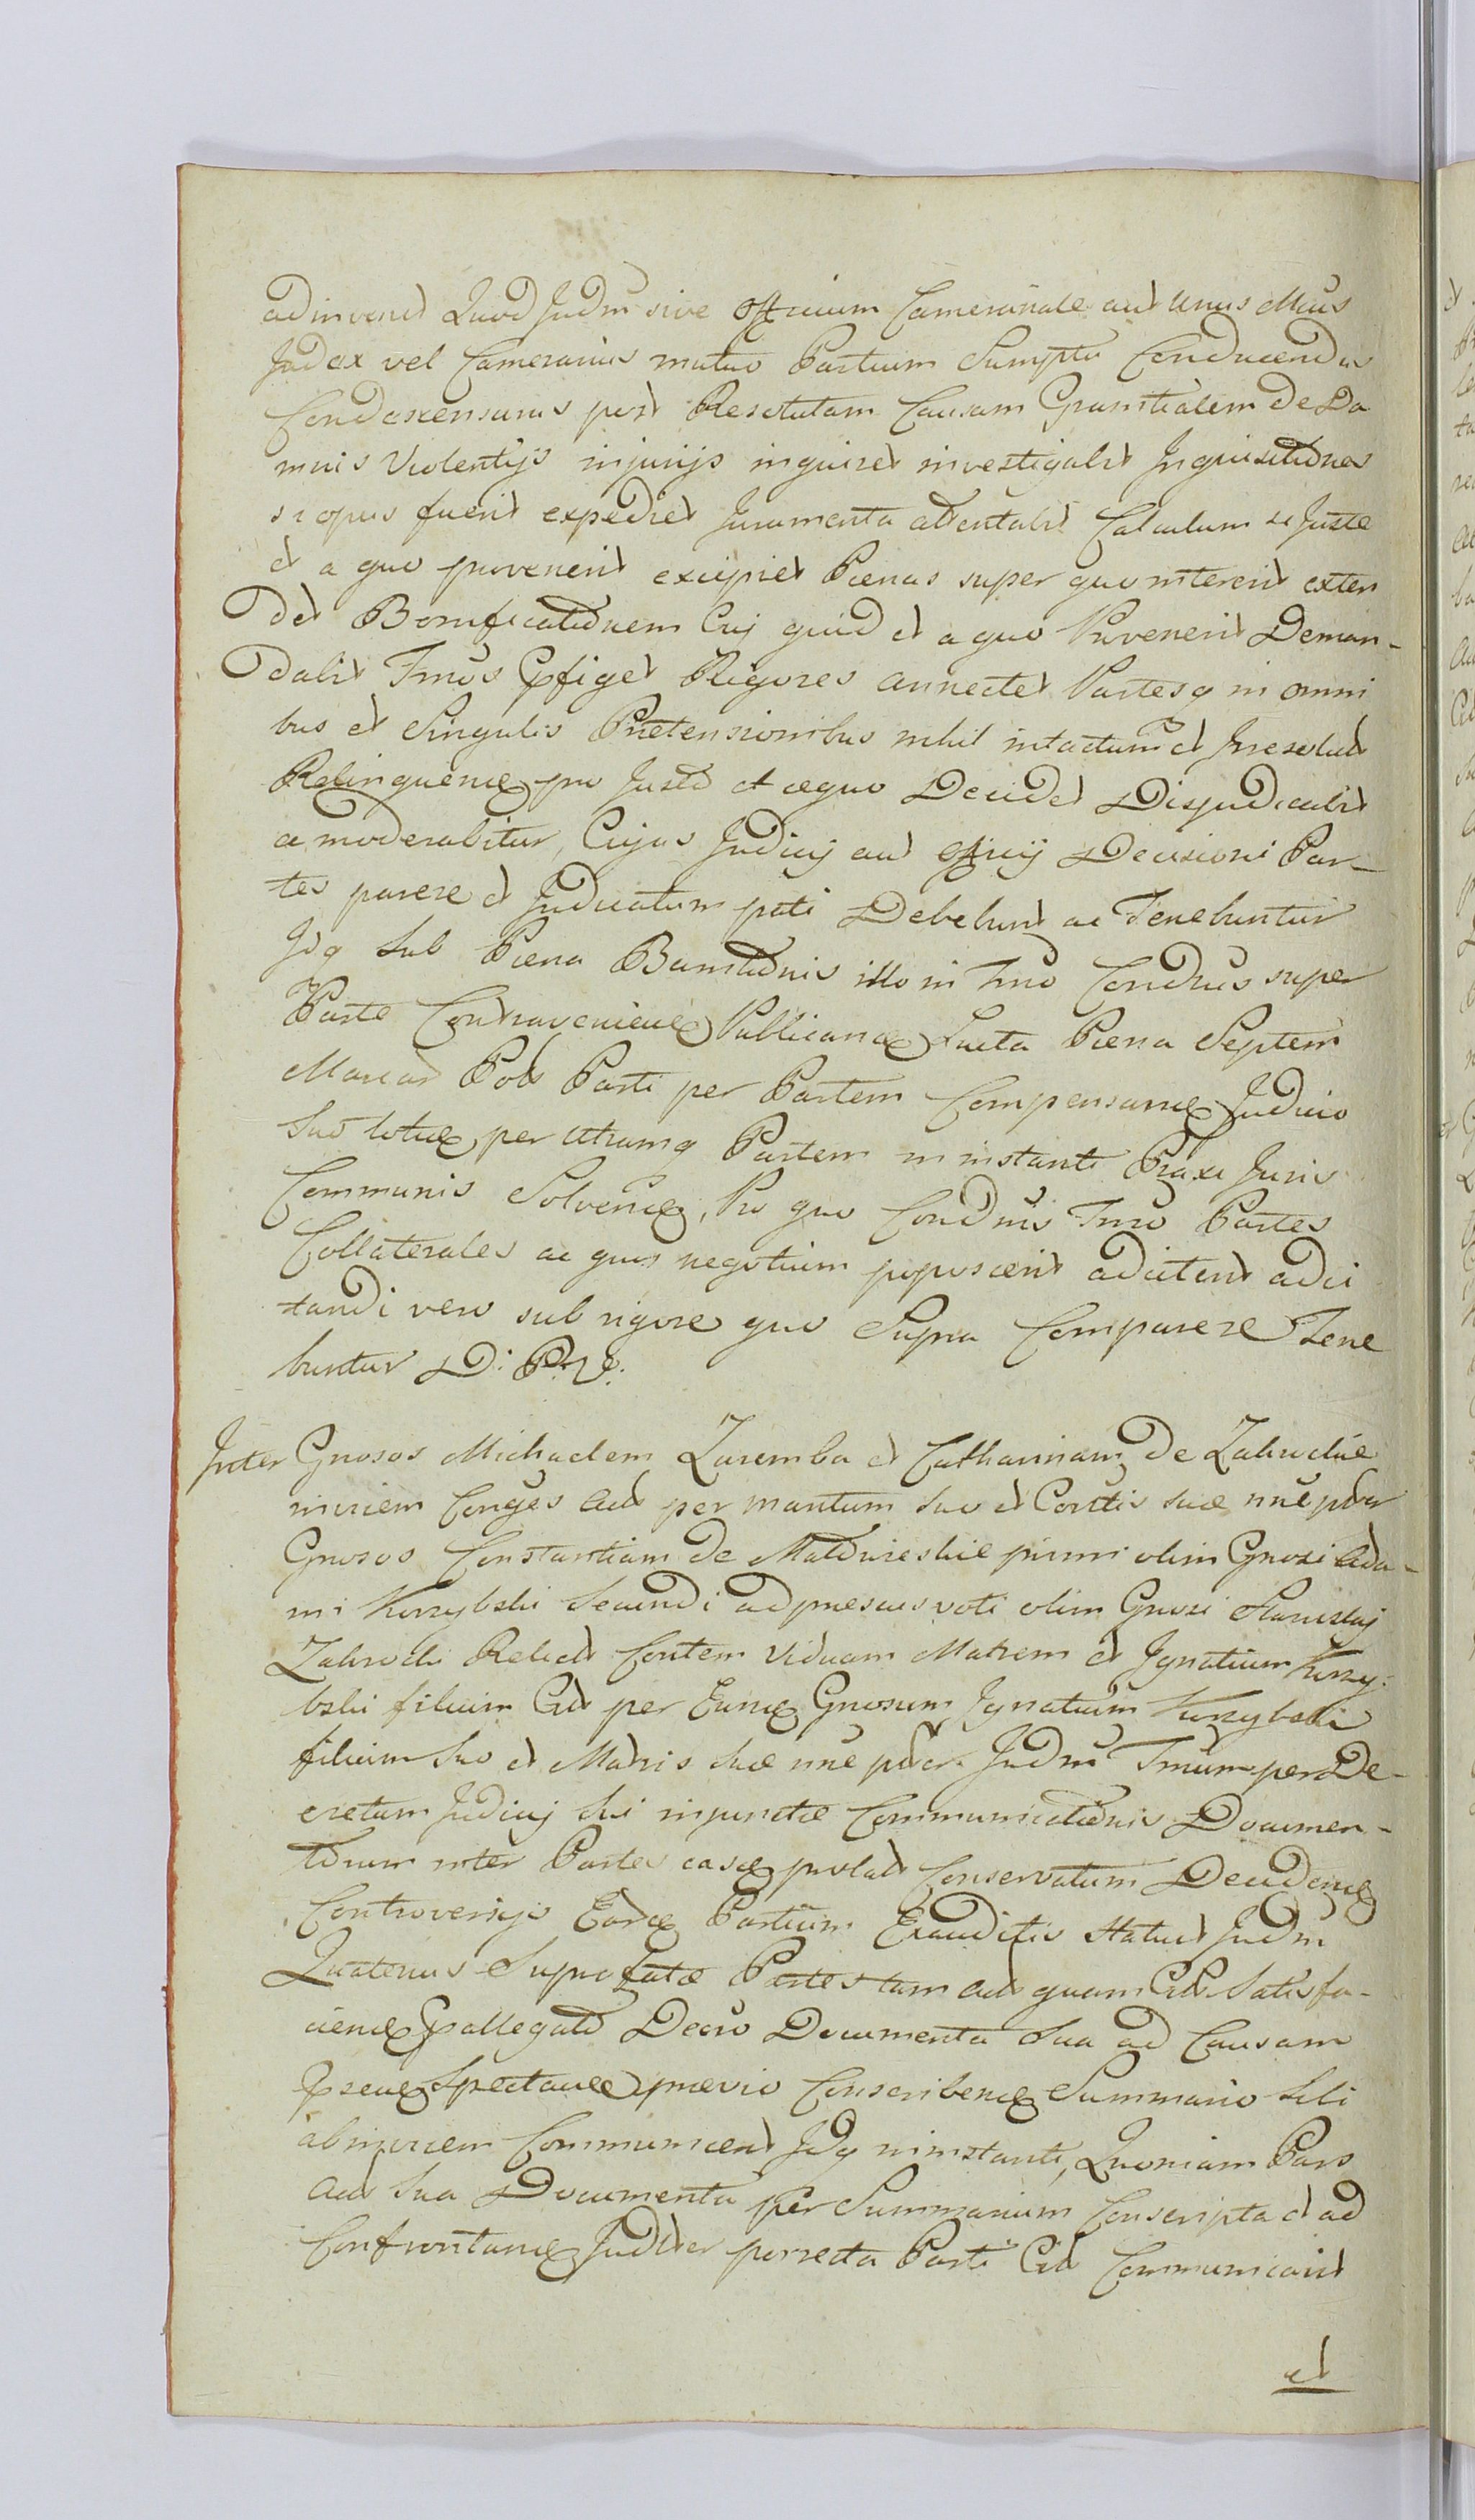 adinvenet Quod Judm sive Officium Camerariale aut Unus Mcus
Judex vel Camerarius mutuo Partium Sumptu Conducendus
Condescensurus post Resolutam Causam Granitialem de Da
mnis Violentijs injurijs inquiret investigabit Inquisitiones
si opus fuerit expediet Juramenta attentabit Calculum si Juste
et a quo provenerit excipiet Paenas super quo intererit exten
det Bonificationem Cuj quid et a quo Provenerit Deman-
dabit Tmos Pfiget Rigores annectet Partesq in omni
bus et Singulis Praetensionibus nihil intactum et Irresolut
Relinquen pro Justo et aequo Decidet Disjudicabit
ac moderabitur, Cujus Judicij aut Officij Decisioni Par-
tes parere et Judicatum pati Debebunt ac Tenebuntur
Idq Sub Paena Bannitionis illo in Tmo Condnis super
Parte Contravenien Publican Lucta Paena Septem
Marcar Pols Parti per Partem Compensan Judicio
Suo toties per utramq Partem in instanti Praxi Juris
Communis Solven, Pro quo Condnis Tmo Partes
Collaterales ac quos negotium poposcerit adcitent adci
tandi vero sub rigore quo Supra Comparere Tene
buntur D: P. V.
Inter Gnosos Michaelem Zaremba et Catharinam de Zabrockie
inuicem Conges Acts per maritum suo et Consttis suae nne pbr
Gnosos Constantiam de Maldrzeskie primi olim Gnosi Ada-
mi Kurzybski Secundi adpraesens voti olim Gnosi Stanislaj
Zabrocki Relict Contem Viduam Matrem et Ignatium Kurzy-
bski filium Cit per Eund Gnosum Ignatium Kurzybski
filium Suo et Matris Suae nne pbr Judm Tmum pero De-
cretum Judicij Sui injunctae Communicationis Documen-
torum inter Partes easd prolat Conservatum Deciden
Controversijs Eard Partium Exauditis Statuit Judm
Quatenus Suprafatae Partes tam Act quam Cit Satisfa-
cien Pallegato Decro Documenta Sua ad Causam
Psen Spectan praevio Conscriben Summario Sibi
abinvicem Communicent Idq in instanti, Quoniam Pars
Act Sua Documenta per Summarium Conscripta et ad
Confrontan Judlter porrecta Parti Cit Communicavit
et